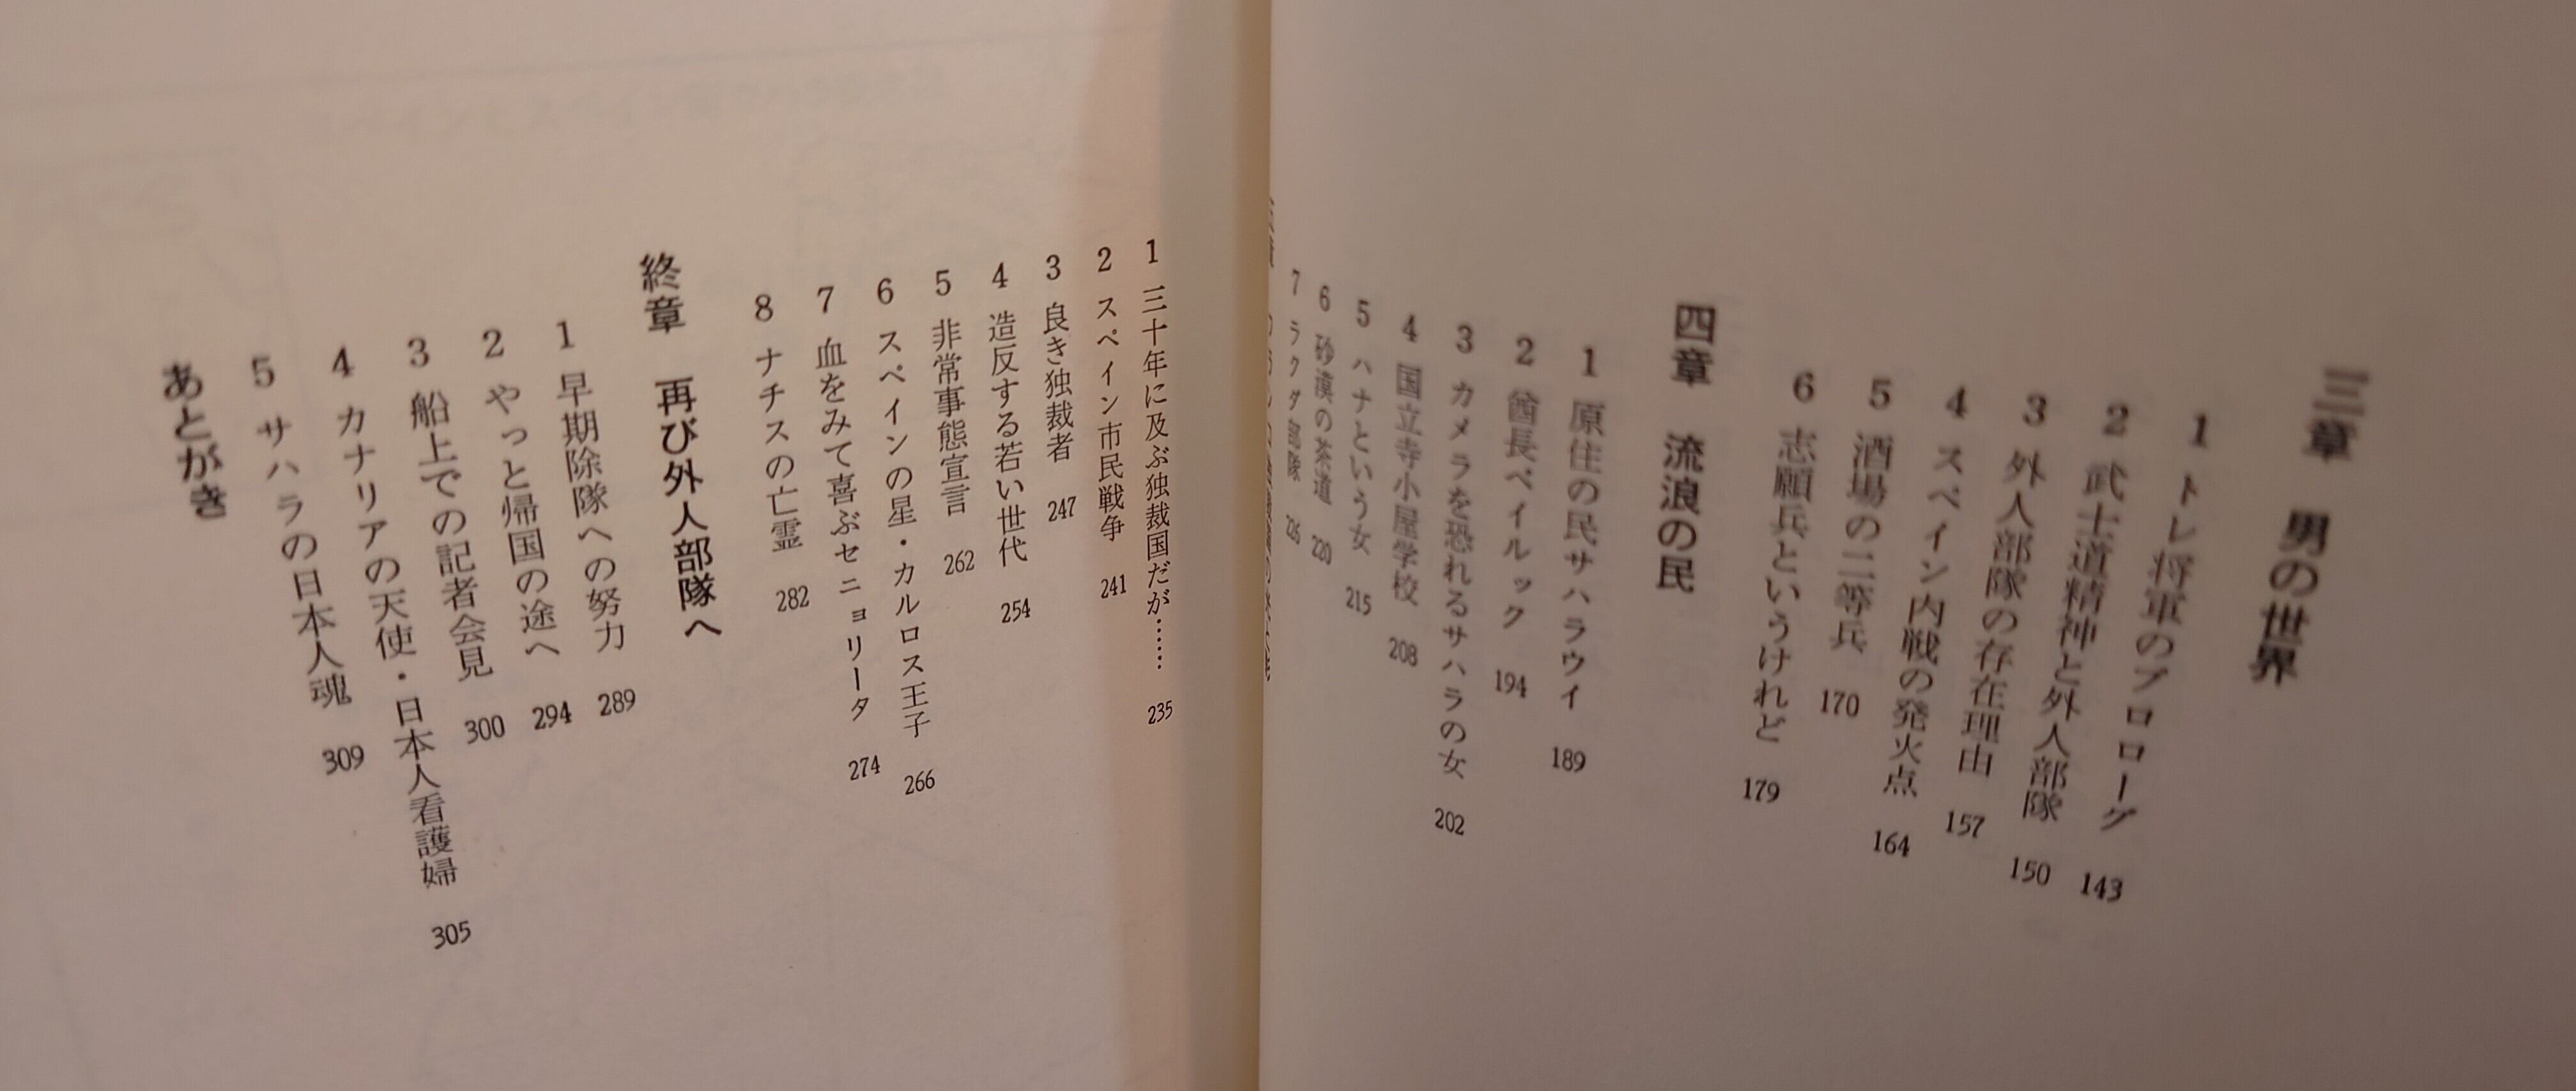 三章　男の世界
1　トレ将軍のプロローグ　143
2　武士道精神と外人部隊　150
3　外人部隊の存在理由　157
4　スペイン内戦の発火点　164
5　酒場の二等兵　170
6　志願兵というけれど　179
四章　流浪の民
1　原住の民サハラウイ　189
2　酋長ペイルック　194
3　カメラを恐れるサハラの女　202
4　国立寺小屋学校　208
5　ハナという女　215
6　砂漠の茶道　220
7　ラクダ部隊　226
1　三十年に及ぶ独裁国だが……　235
2　スペイン市民戦争　241
3　良き独裁者　247
4　造反する若い世代　254
5　非常事態宣言　262
6　スペインの星・カルロス王子　266
7　血をみて喜ぶセニョリータ　274
8　ナチスの亡霊　282
終章　再び外人部隊へ
1　早期除隊への努力　289
2　やっと帰国の途へ　294
3　船上での記者会見　300
4　カナリアの天使・日本人看護婦　305
5　サハラの日本人魂　309
あとがき